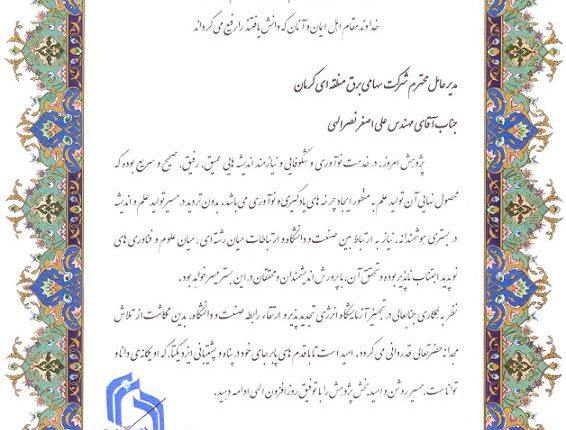 خداوند مقام اهل ایمان و آنان که دانش یافتند را رفیع می گرداند
مدیر عامل محترم شرکت سهامی برق منطقه ای کرمان
جناب آقای مهندس علی اصغر نصرالهی
پژوهش امروز، در خدمت نوآوری و شکوفایی و نیازمند اندیشه هایی عمیق، رقیق، صحیح و سریع بوده که
محصول نهایی آن تولید علم به منظور ایجاد چرخه های یادگیری و نوآوری می باشد. بدون تردید، مسیر تولید علم و اندیشه
در بستری هوشمندانه، نیاز به ارتباط بین صنعت و دانشگاه و ارتباطات میان رشته ای، میان علوم و فناوری های
نوپدید اجتناب ناپذیر بوده و تحقق آن، با پرورش اندیشمندان و محققان در این بستر میسر خواهد بود.
نظر به همکاری جنابعالی در تجهیز آزمایشگاه انرژی تجدید پذیر و ارتقاء رابطه صنعت و دانشگاه، بدین نگاشت از تلاش
مجدانه حضرتعالی قدردانی می گردد. امید است تا با قدم های پابرجای خود در پناه و پشتیبانی ایزد یکتا، که او یگانه ی دانا و
تواناست، مسیر روشن و امید بخش پژوهش را با توفیق روزافزون الهی ادامه دهید.